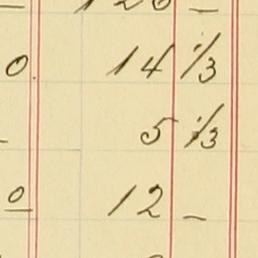 120 –
0 14 1/3
– 5 1/3
0 12 –